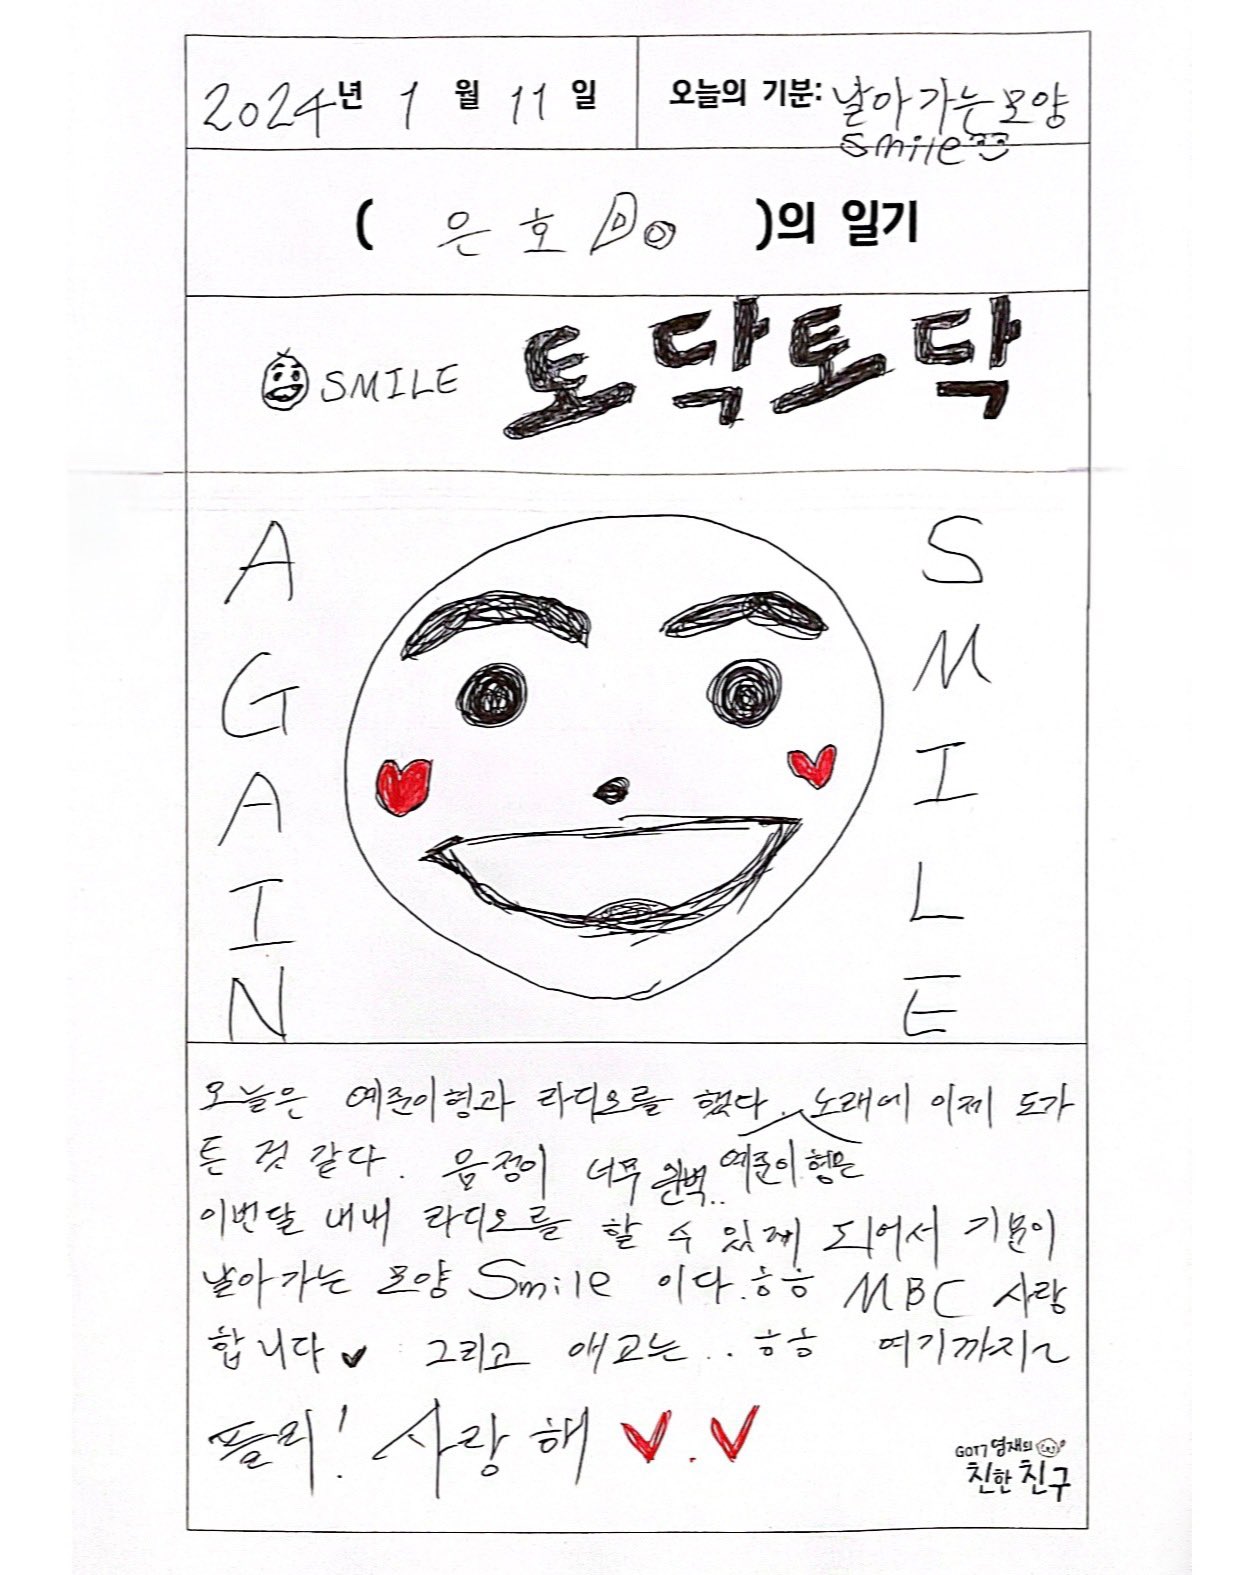 2024년 1월 11일
오늘의 기분: 날아가는모양
smile
( 은호Do )의 일기
SMILE 토닥토닥
AGAIN
SMILE
오늘은 예준이형과 라디오를 했다. 노래에 이제 도가
튼 것 같다. 음정이 너무 완벽.. 예준이형은
이번달 내내 라디오를 할 수 있게 되어서 기분이
날아가는 모양 Smile 이다. ㅎㅎ MBC 사랑
합니다♥ 그리고 애교는.. ㅎㅎ 여기까지~
플리! 사랑해 ♥.♥
GOT7 영재의
친한친구